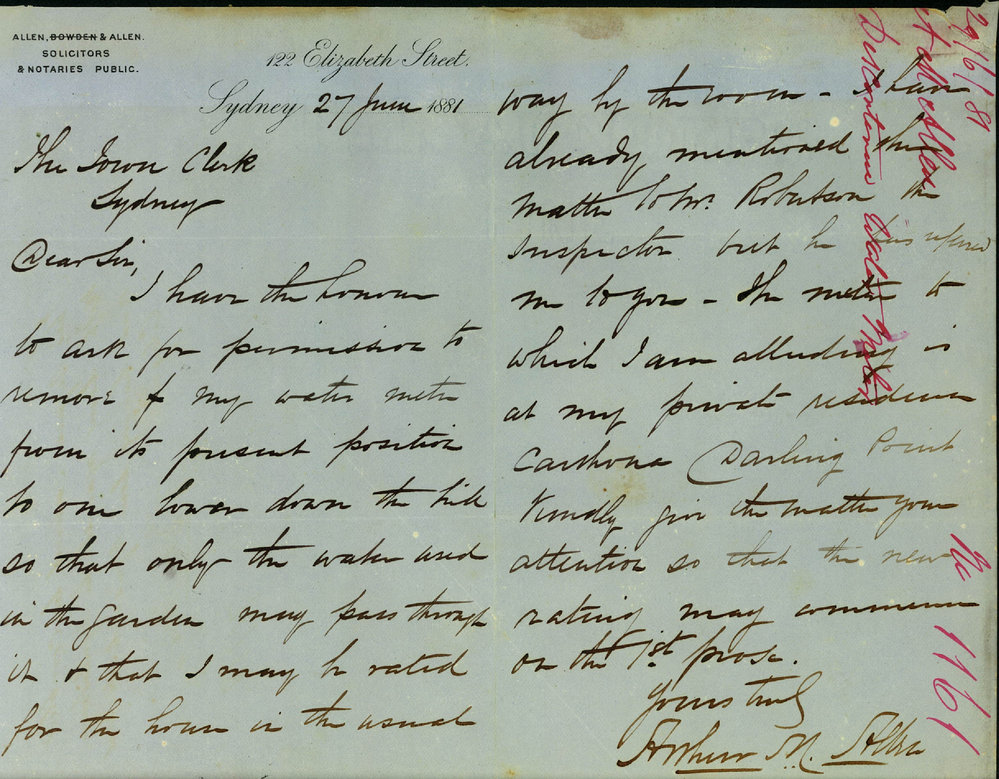 ALLEN, BOWDEN & ALLEN.
SOLICITORS
& NOTARIES PUBLIC.
122 Elizabeth Street.
Sydney 27 June 1881
The Town Clerk
Sydney
Dear Sir,
I have the honour
to ask for permission to
remove my water meter
from its present position
to one lower down the hill
so that only the water used
in the garden may pass through
it & that I may be rated
for the house in the usual
way by the room - I have
already mentioned the
matter to Mr. Robertson the
Inspector but he has referred
me to you - The meter to
which I am alluding is
at my private residence
Carthona Darling Point
Kindly give the matter your
attention so that the new
rating may commence
on the 1st prox.
Yours truly
Arthur M. Allen
29/6/81
A M Allen
Discontinue Water
No 1161